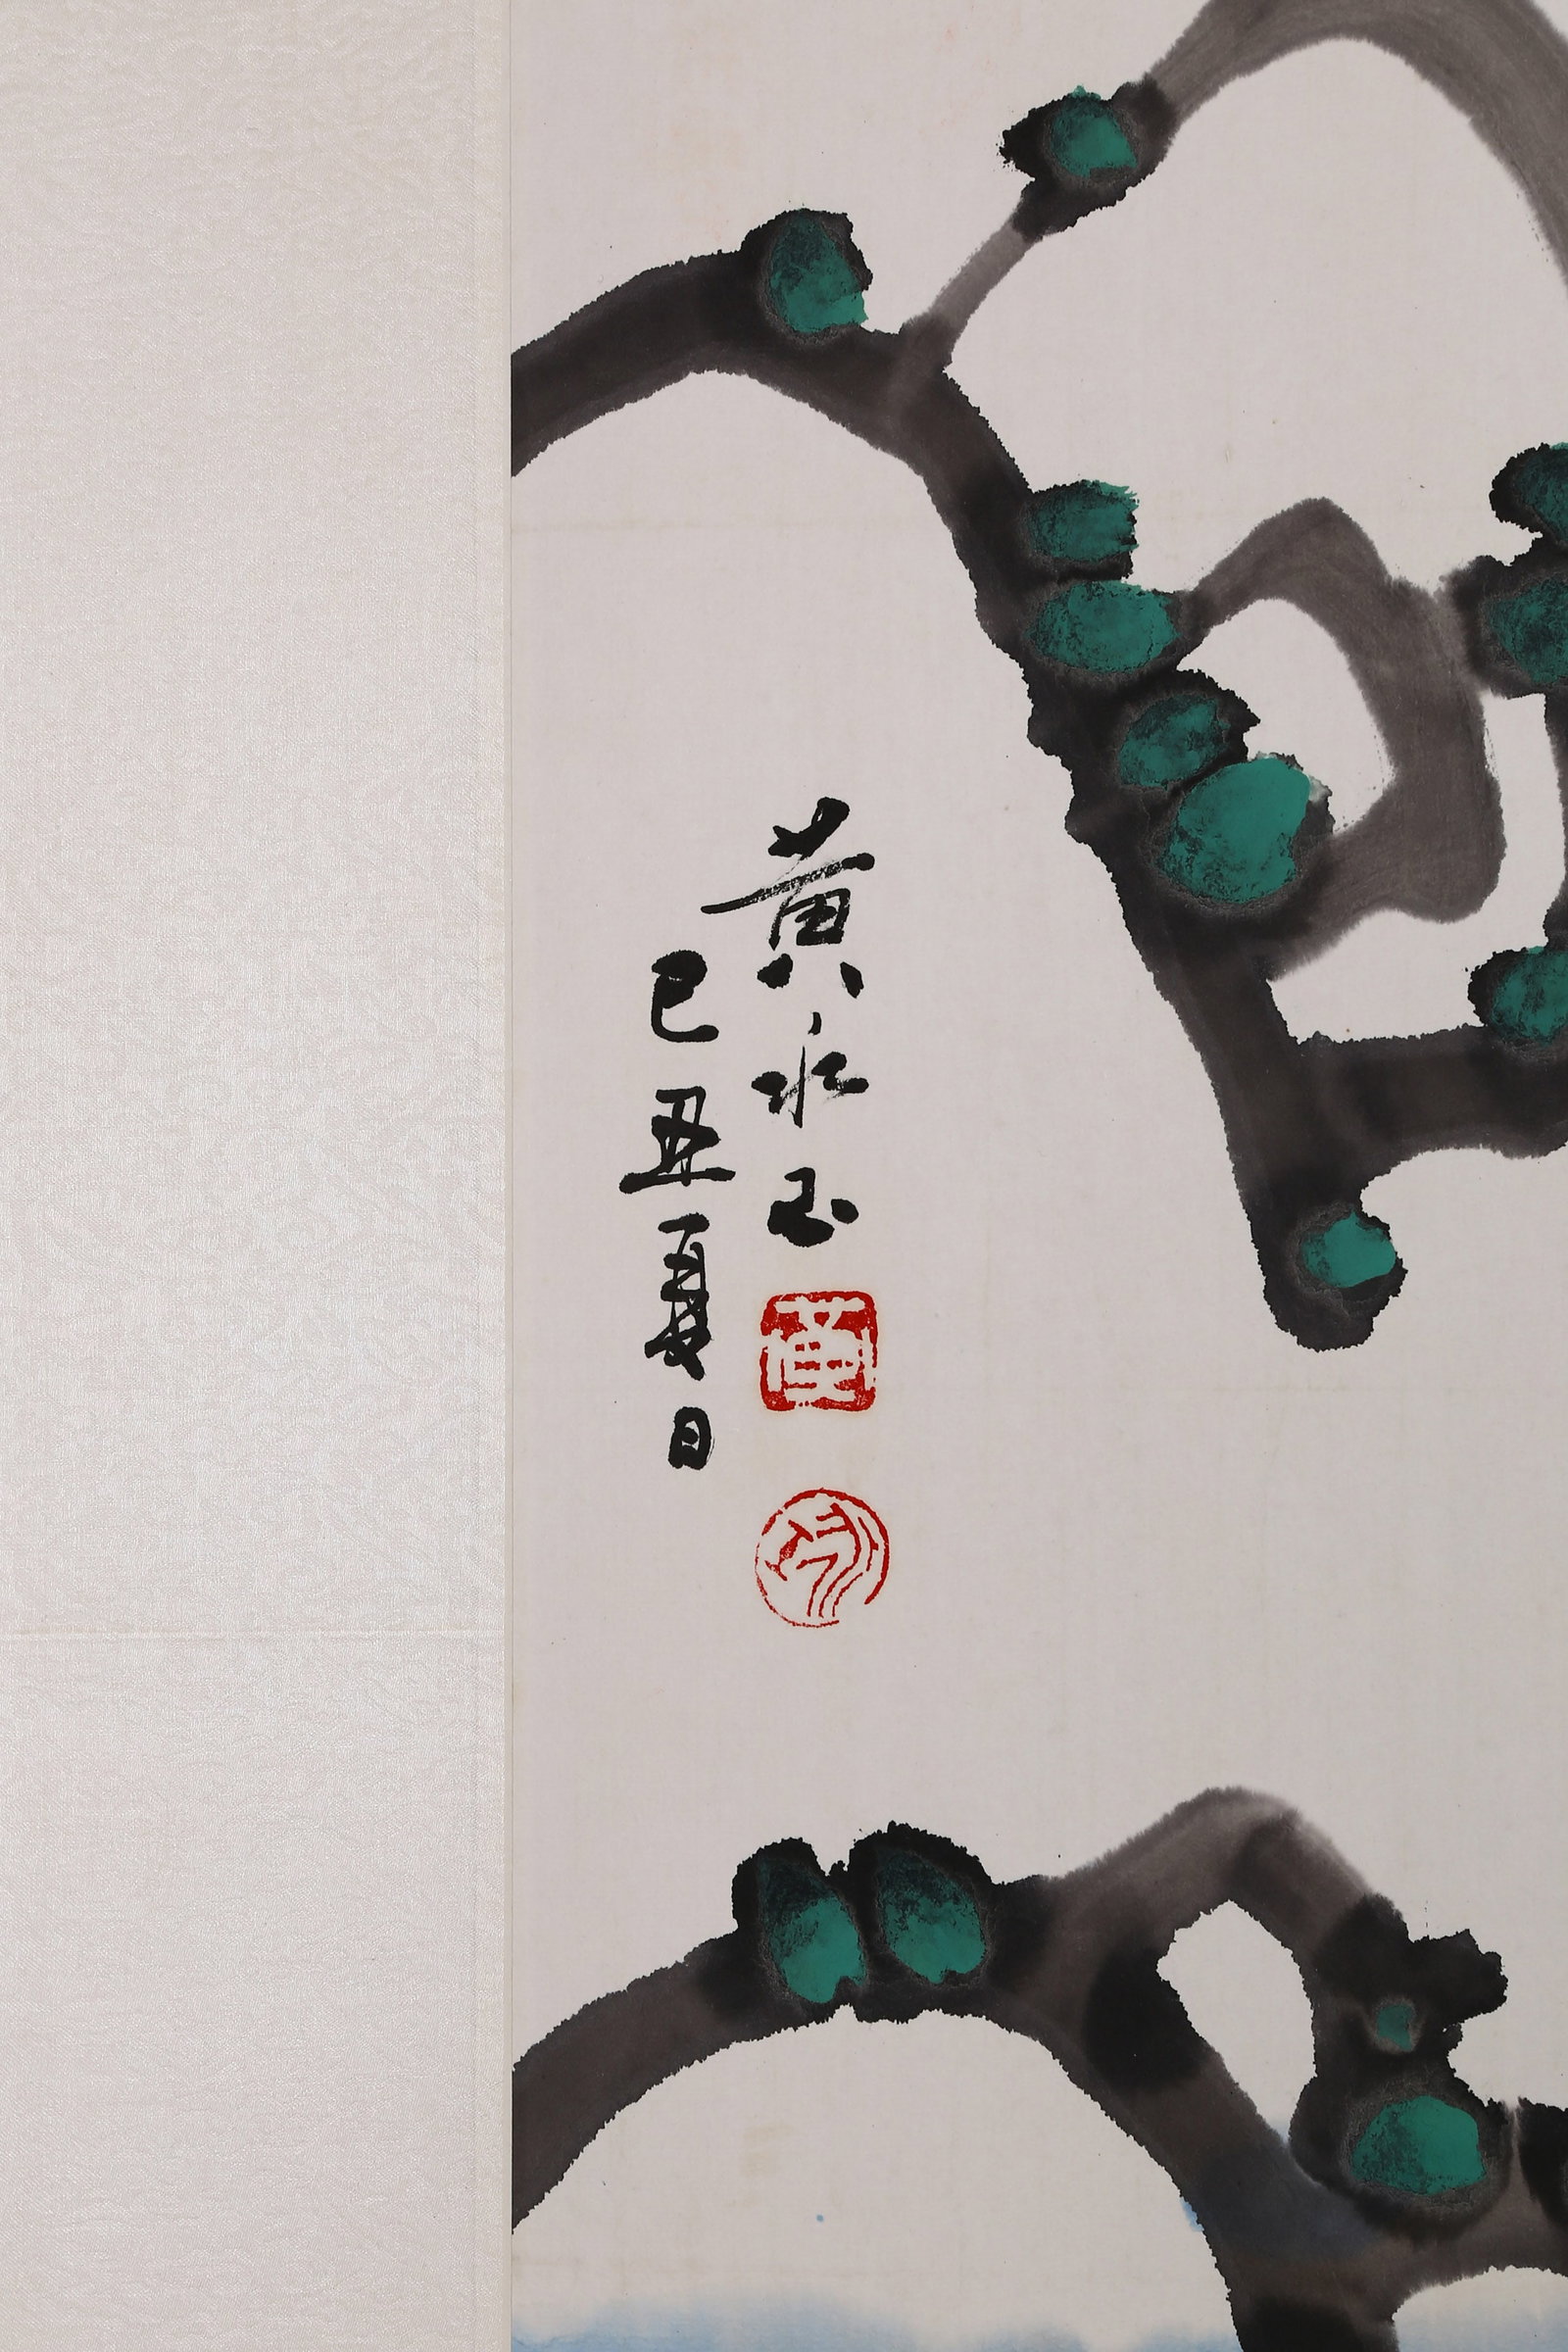 黄永玉
己丑夏日
黄